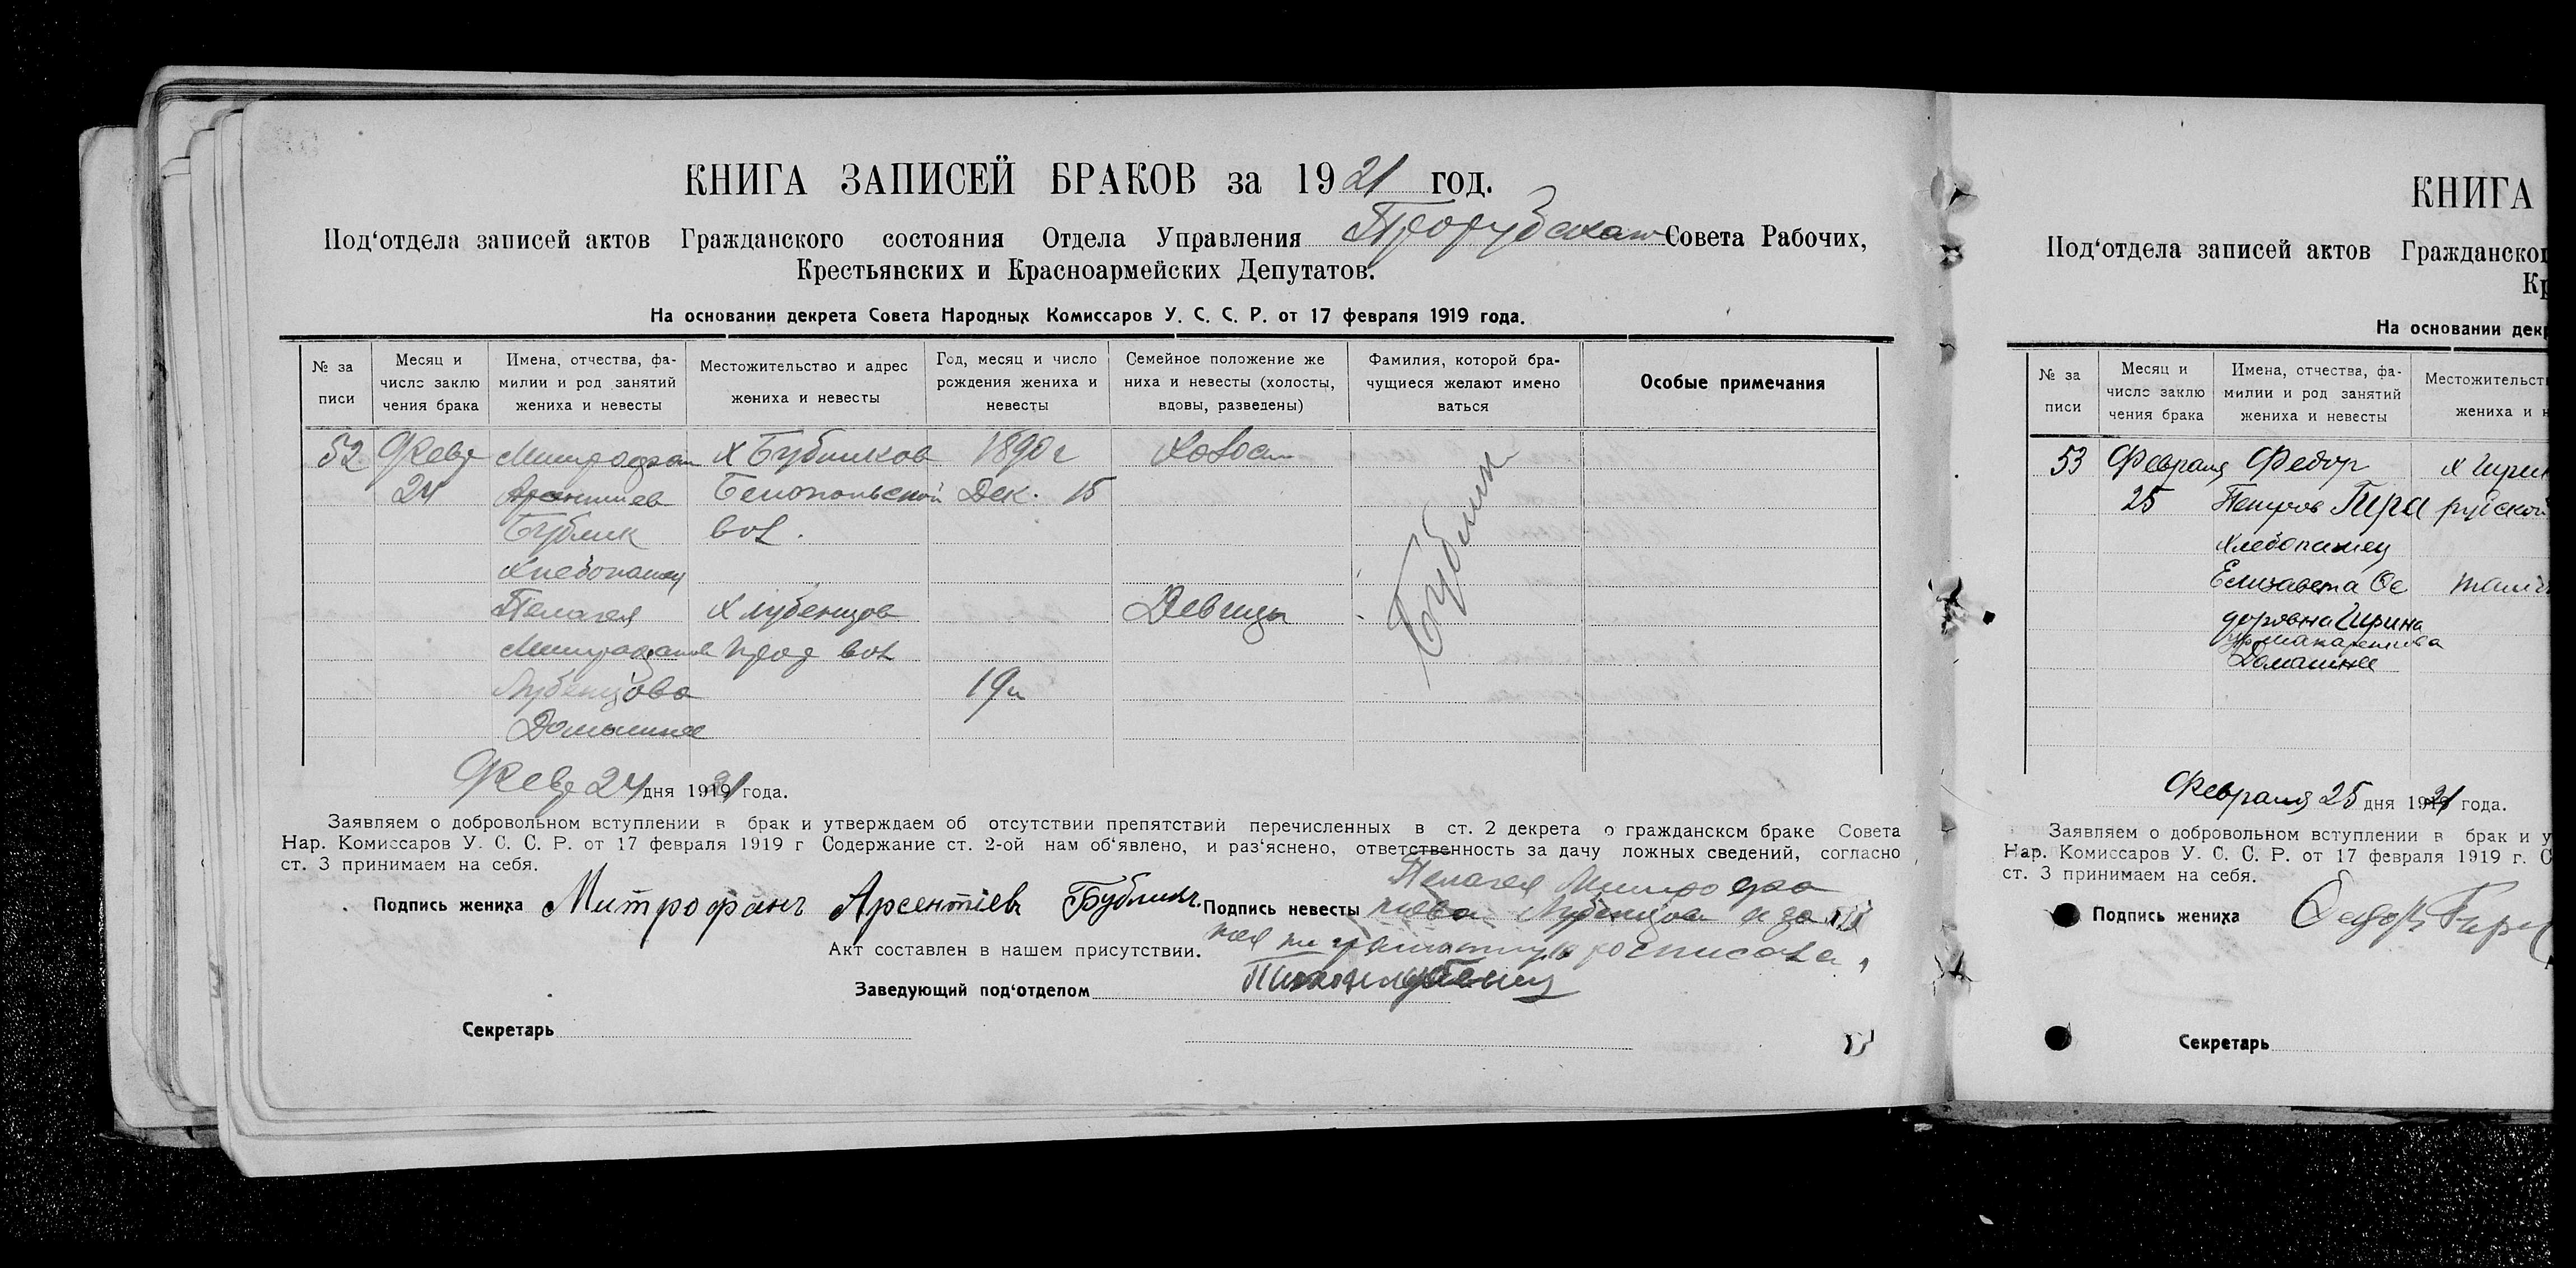 КНИГА ЗАПИСЕЙ БРАКОВ за 1921 год.
Под‘отдела записей актов Гражданского состояния Отдела Управления Совета Рабочих,
Крестьянских и Красноармейских Депутатов.
На основании декрета Совета Народных Комиссаров У. С. С. Р. от 17 февраля 1919 года.
№ за писи
Месяц и число заклю чения брака
Имена, отчества, фамилии и род занятий жениха и невесты
Местожительство и адрес жениха и невесты
Год, месяц и число рождения жениха и невесты
Семейное положение же ниха и невесты (холосты, вдовы, разведены)
Фамилия, которой брачущиеся желают имено ваться
Особые примечания
52 Февр Митрофан х Бубликов 1890 г Холост
24 Арентиев Белопольской Дек. 15
Бублик вол.
Хлебопашец
Пелагея х Лубенцов Девица
Митрофанов вол
Лубенцова 19 л
Домашнее
Бублик
Февр 24 дня 1921 года.
Заявляем о добровольном вступлении в брак и утверждаем об отсутствии препятствий перечисленных в ст. 2 декрета о гражданском браке Совета
Нар. Комиссаров У. С. С. Р. от 17 февраля 1919 г Содержание ст. 2-ой нам об‘явлено, и раз‘яснено, ответственность за дачу ложных сведений, согласно
ст. 3 принимаем на себя.
Подпись жениха Митрофанъ Арсентіевъ Бубликъ. Подпись невесты Пелагея Митрофа
нова Лубенцова а за
Акт составлен в нашем присутствии.
Заведующий под‘отделом
Секретарь
КНИГА
Под‘отдела записей актов Гражданског
Кр
На основании дек
№ за писи
Месяц и число заклю чения брака
Имена, отчества, фамилии и род занятий жениха и невесты
Местожительст
жениха и н
53 Февраля Федор
25 Петров Гира
Хлебопашец
Елизавета Ѳе
доровна Чирина
Домашнее
Февраля 25 дня 1921 года.
Заявляем о добровольном вступлении в брак и у
Нар. Комиссаров У. С. С. Р. от 17 февраля 1919 г. С
ст. 3 принимаем на себя.
Подпись жениха
Секретарь